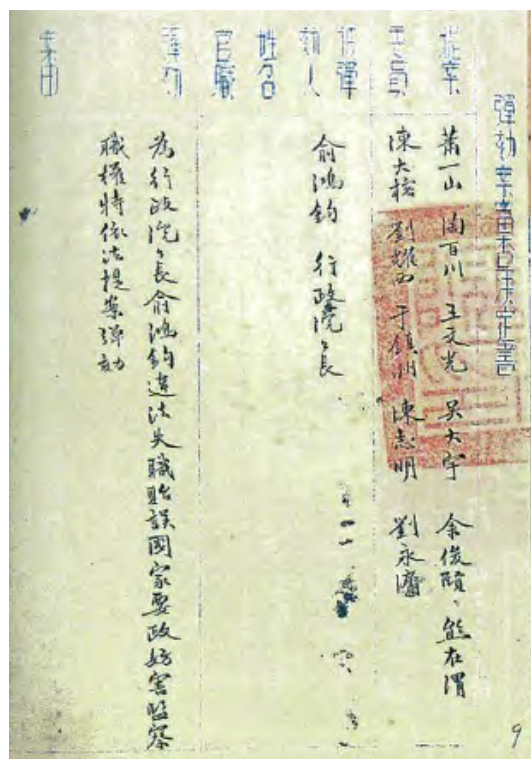 彈劾案審查決定書
提案
委員
蕭一山 陶百川 王文光 吳大宇 余俊賢、熊在渭
陳大榕 劉耀西 于鎮洲 陳志明 劉永濟
被彈
劾人
姓名
官職
俞鴻鈞 行政院々長
彈劾
案由
為行政院々長俞鴻鈞違法失職貽誤國家要政妨害監察
職權特依法提案彈劾
9